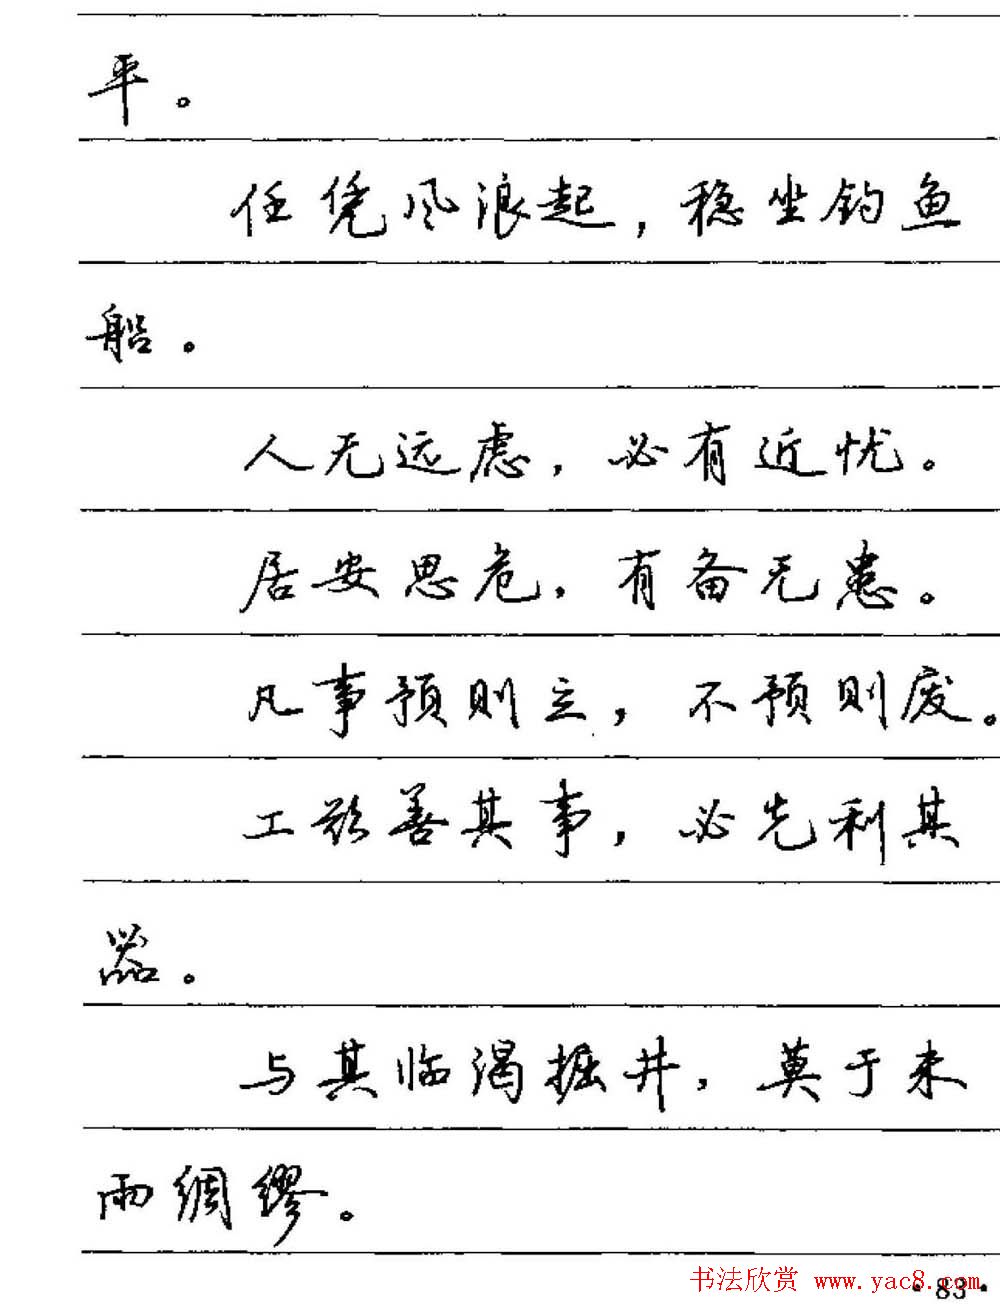 平。
任凭风浪起，稳坐钓鱼
船。
人无远虑，必有近忧。
居安思危，有备无患。
凡事预则立，不预则废。
工欲善其事，必先利其
器。
与其临渴掘井，莫于未
雨绸缪。
书法欣赏 www.yac8.com
·83·